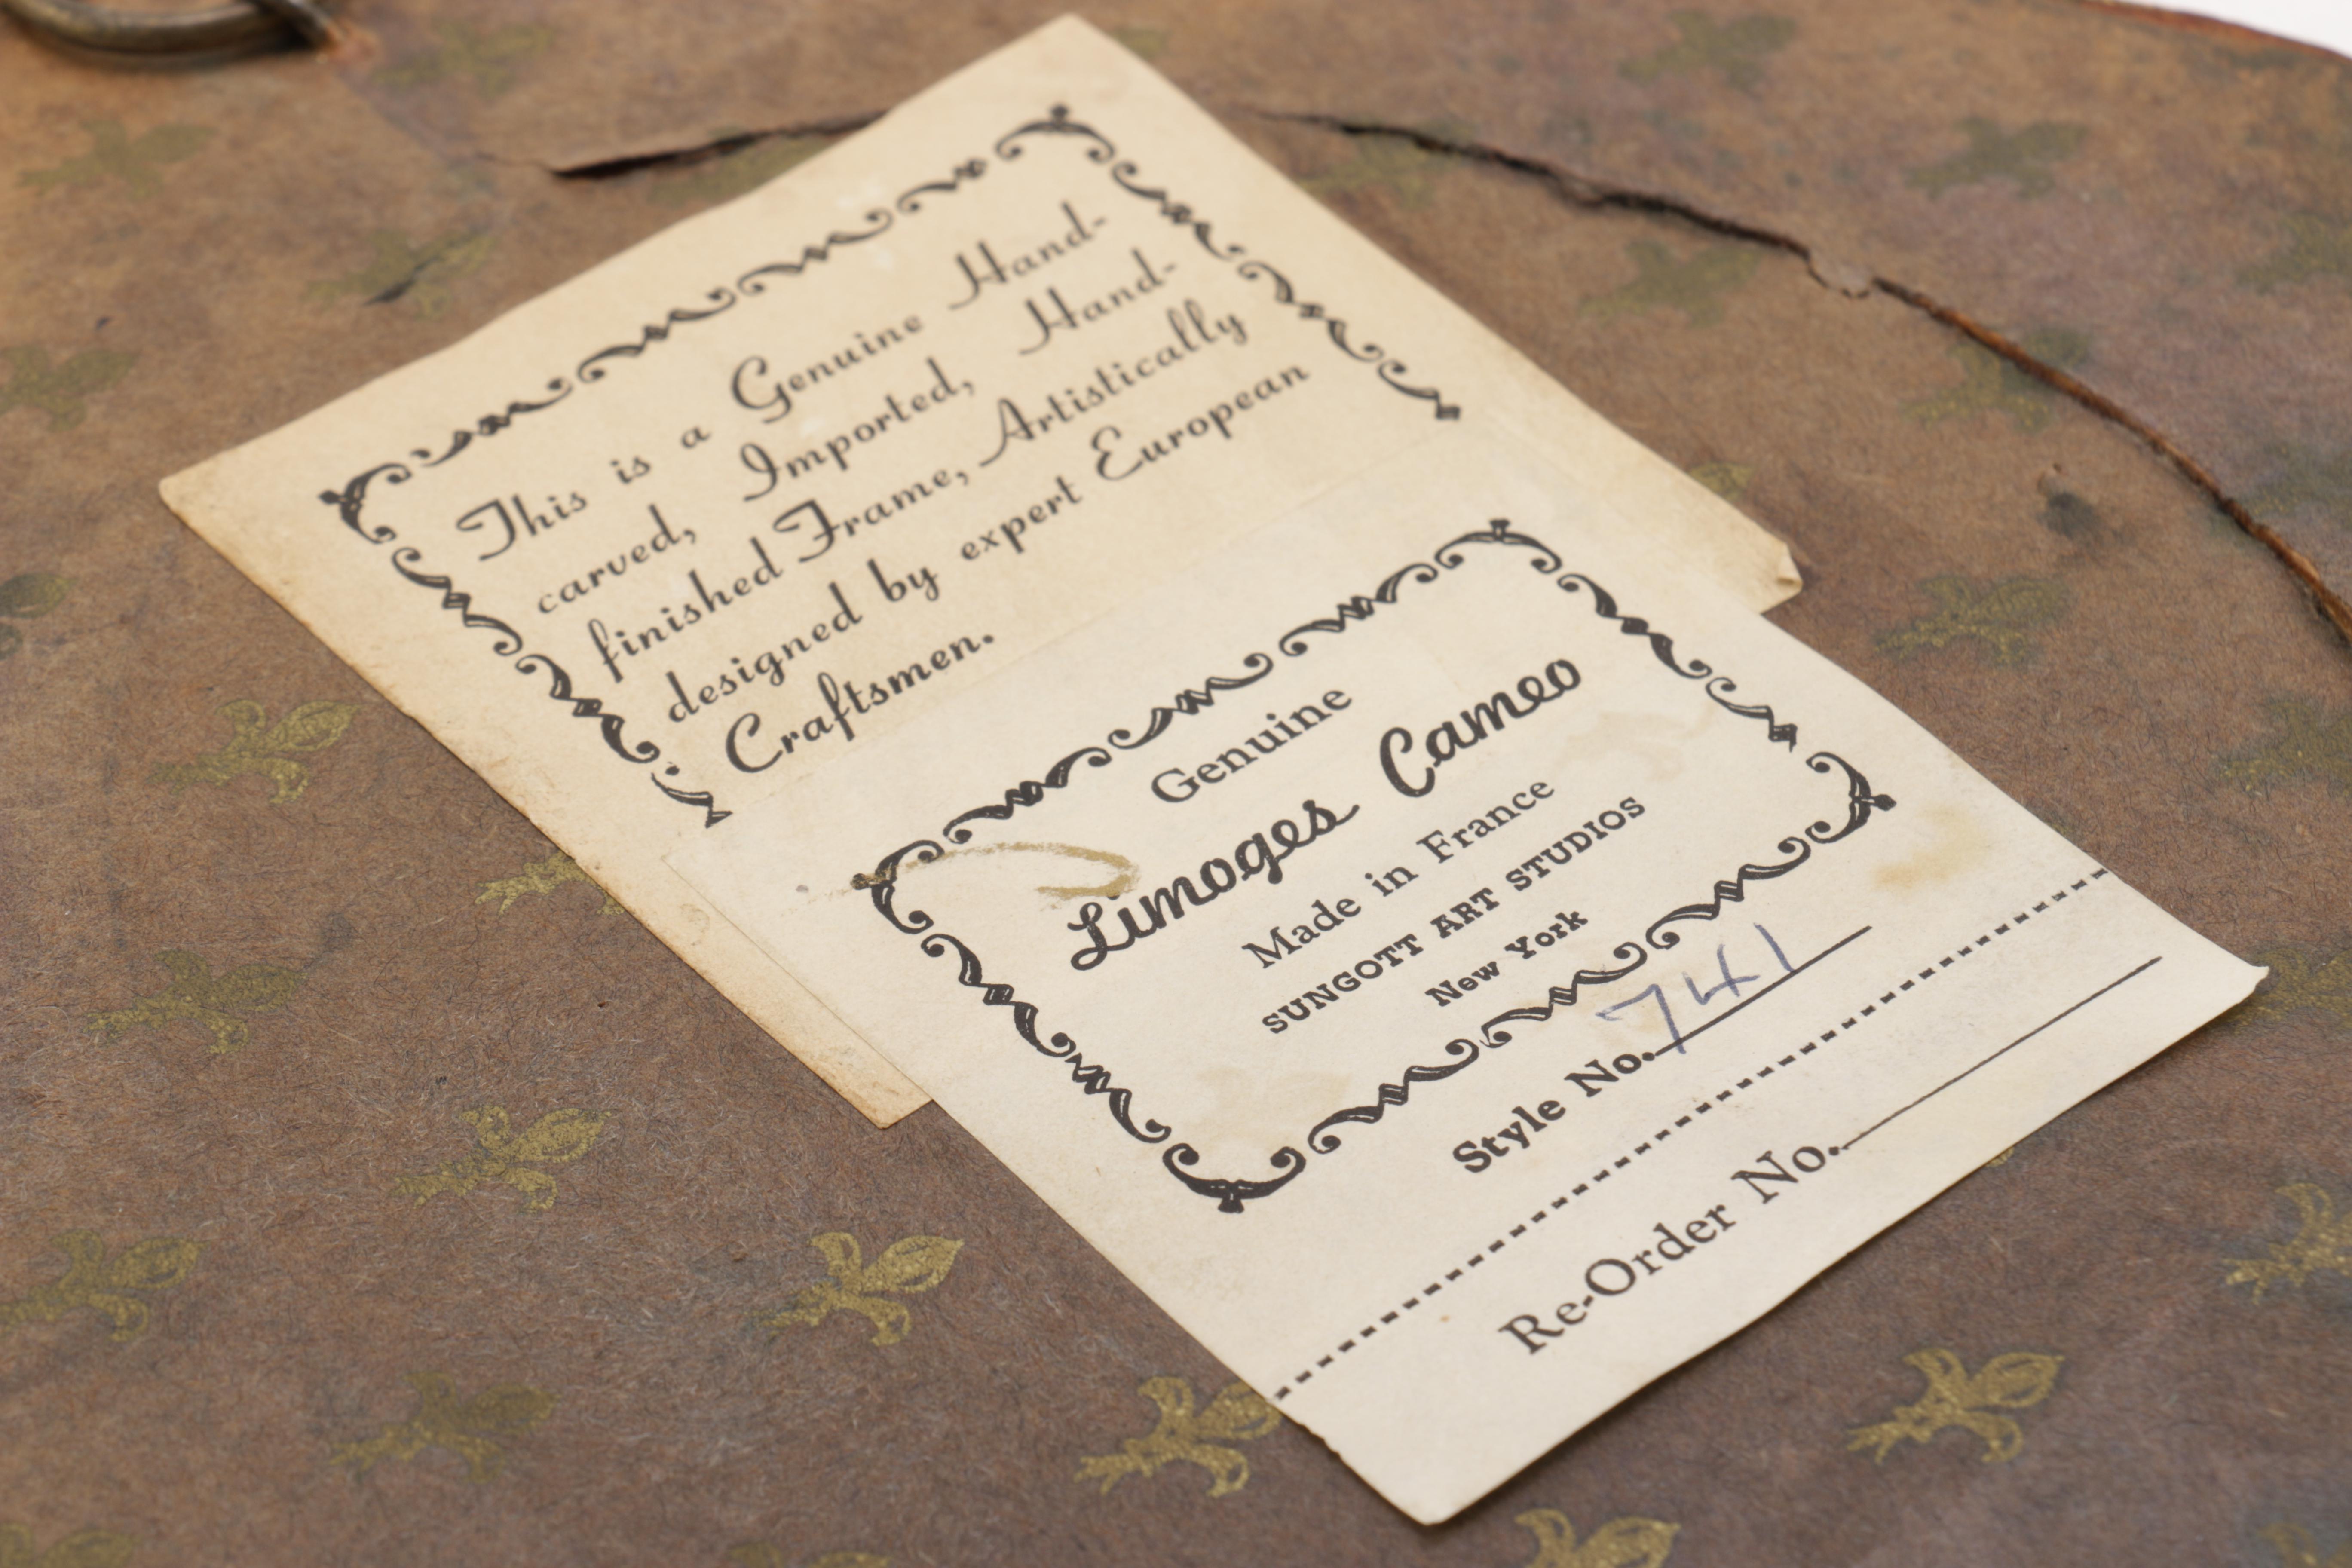 This is a Genuine Hand-
carved, Imported, Hand-
finished Frame, Artistically
designed by expert European
Craftsmen.
Genuine
Limoges Cameo
Made in France
SUNGOTT ART STUDIOS
New York
Style No. 741
Re-Order No.